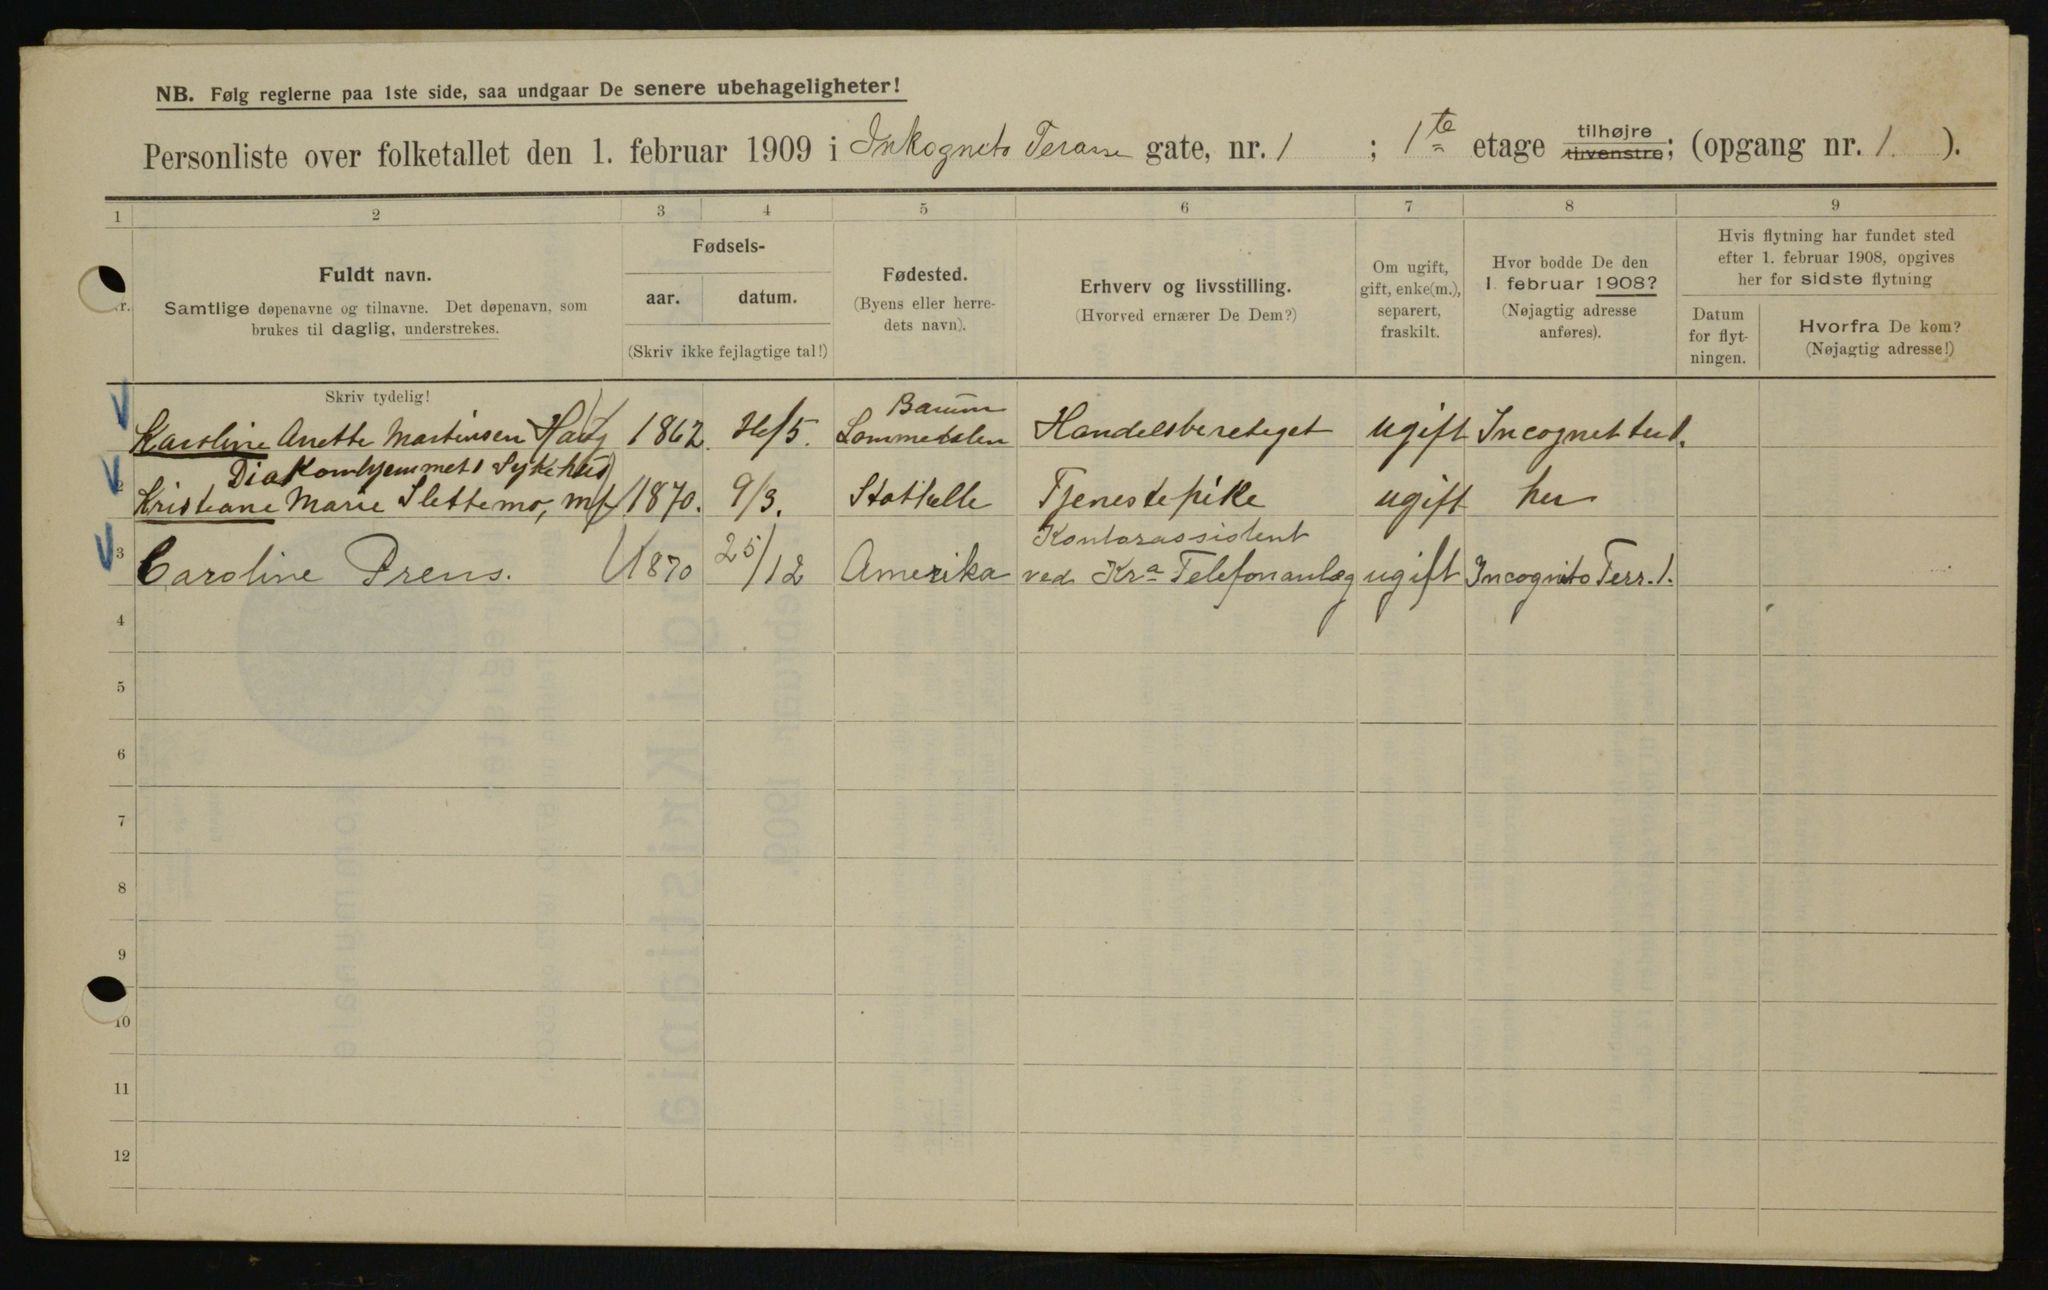 NB. Følg reglerne paa 1ste side, saa undgaar De senere ubehageligheter!
Personliste over folketallet den 1. februar 1909 i Inkogneto Terasse gate, nr. 1 ; 1te etage tilhøjre tilvenstre; (opgang nr. 1. ).
1 2 3 4 5 6 7 8 9
Nr.
Fuldt navn.
Samtlige døpenavne og tilnavne. Det døpenavn, som
brukes til daglig, understrekes.
Fødsels-
aar. datum.
(Skriv ikke fejlagtige tal!)
Fødested.
(Byens eller herre-
dets navn).
Erhverv og livsstilling.
(Hvorved ernærer De Dem?)
Om ugift,
gift, enke(m.),
separert,
fraskilt.
Hvor bodde De den
1. februar 1908?
(Nøjagtig adresse
anføres).
Hvis flytning har fundet sted
efter 1. februar 1908, opgives
her for sidste flytning
Datum
for flyt-
ningen.
Hvorfra De kom?
(Nøjagtig adresse!)
Skriv tydelig!
Bærum
Karoline Anette Martinsen Haug 1862. /5. Lommedalen Handelsberetiget ugift Incognet ter 1.
Diakonhjemmets Sykehus
2 Kristiane Marie Slettemo, 1870. 9/3. Stathelle Tjenestepike ugift her
Kontorassistent
3 Caroline Prens. 1870 25/12 Amerika ved Kra Telefonanlæg ugift Incognito Terr. 1.
4
5
6
7
8
9
10
11
12